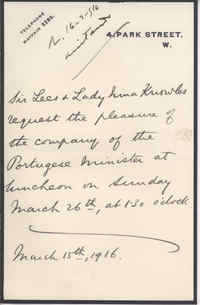 TELEPHONE
MAYFAIR
4, PARK STREET,
W.
Sir Lees & Lady Nina Knowles
request the pleasure of
the company of the
Portugese Minister at
luncheon on Sunday
March 26th, at 1.30 o'clock
March 15th, 1916.